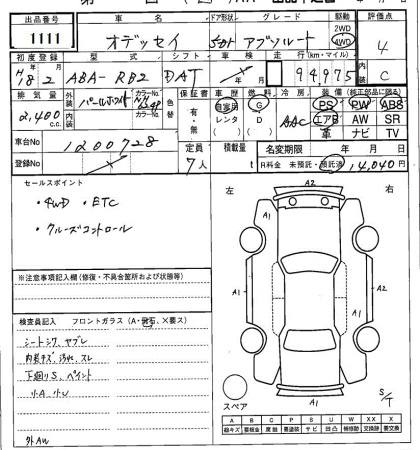 出品番号 車名 ドア形状 グレード 駆動 評価点
1111 オデッセイ 5ドア アブソルート 2WD 4WD 4
初度登録 型式 シフト 車検 走行(km・マイル) 内装
H18年2月 ABA-RB2 DAT 年 月 94,975 C
排気量 外装 パールホワイト カラーNo. 色替 保証書 車歴 燃料 冷房 装備(純正部品に限る)
2,400c.c. 内装 カラーNo. 有・無 自家用 レンタ G D AAC PS PW ABS
エアB AW SR
革 ナビ TV
車台No 1200728 定員 積載量 名変期限 年 月 日
登録No 7人 t R料金 未預託・預託済 14,040円
セールスポイント
・4WD ・ETC
・クルーズコントロール
※注意事項記入欄(修復・不具合箇所および状態等)
検査員記入 フロントガラス(A・飛石・×要ス)
シートシワ、ヤブレ
内装キズ、汚れ、スレ
下廻りS、ペイント
小A、小U
外AW
左 A2 右
A1
A1 A1
A2
A1
スペア
S/T
A B C P S U W XX X
線キズ 要板金 腐蝕 要塗装 サビ 凹凸 補修跡 交換跡 要交換